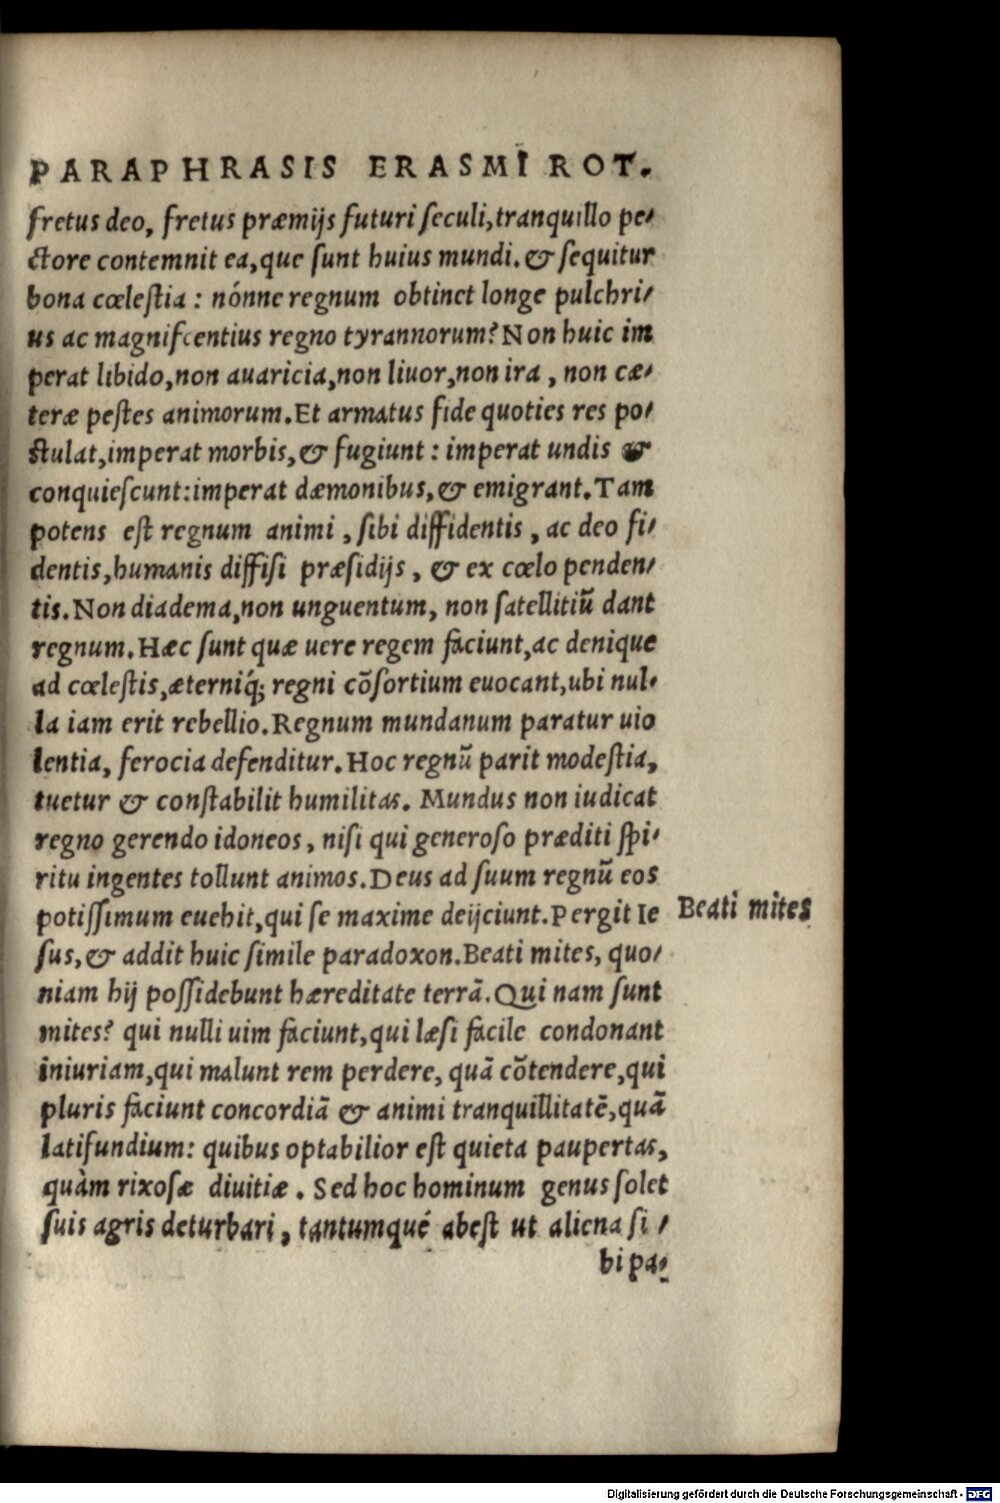 PARAPHRASIS ERASMI ROT.
fretus deo, fretus præmijs futuri ſeculi, tranquillo pe⸗
ctore contemnit ea, que ſunt huius mundi. & ſequitur
bona cœleſtia : nónne regnum obtinet longe pulchri⸗
us ac magnifcentius regno tyrannorum? Non huic im
perat libido, non auaricia, non liuor, non ira , non cæ⸗
teræ peſtes animorum. Et armatus fide quoties res po⸗
ſtulat, imperat morbis, & fugiunt : imperat undis &
conquieſcunt: imperat dæmonibus, & emigrant. Tam
potens eſt regnum animi , ſibi diffidentis , ac deo fi⸗
dentis, humanis diffiſi præſidijs , & ex cœlo penden⸗
tis. Non diadema, non unguentum, non ſatellitiũ dant
regnum. Hæc ſunt quæ uere regem faciunt, ac denique
ad cœleſtis, æterniq́; regni cõſortium euocant, ubi nul⸗
la iam erit rebellio. Regnum mundanum paratur uio
lentia, ferocia defenditur. Hoc regnũ parit modeſtia,
tuetur & conſtabilit humilitas. Mundus non iudicat
regno gerendo idoneos , niſi qui generoſo præditi ſpi⸗
ritu ingentes tollunt animos. Deus ad ſuum regnũ eos
potiſſimum euehit, qui ſe maxime deijciunt. Pergit Ie
Beati mites
ſus, & addit huic ſimile paradoxon. Beati mites, quo⸗
niam hij poſſidebunt hæreditate terrã. Qui nam ſunt
mites? qui nulli uim faciunt, qui læſi facile condonant
iniuriam, qui malunt rem perdere, quã cõtendere, qui
pluris faciunt concordiã & animi tranquillitatẽ, quã
latifundium: quibus optabilior eſt quieta paupertas,
quàm rixoſæ diuitiæ . Sed hoc hominum genus ſolet
ſuis agris deturbari , tantumqué abeſt ut aliena ſi⸗
bi pa⸗
Digitalisierung gefördert durch die Deutsche Forschungsgemeinschaft - DFG